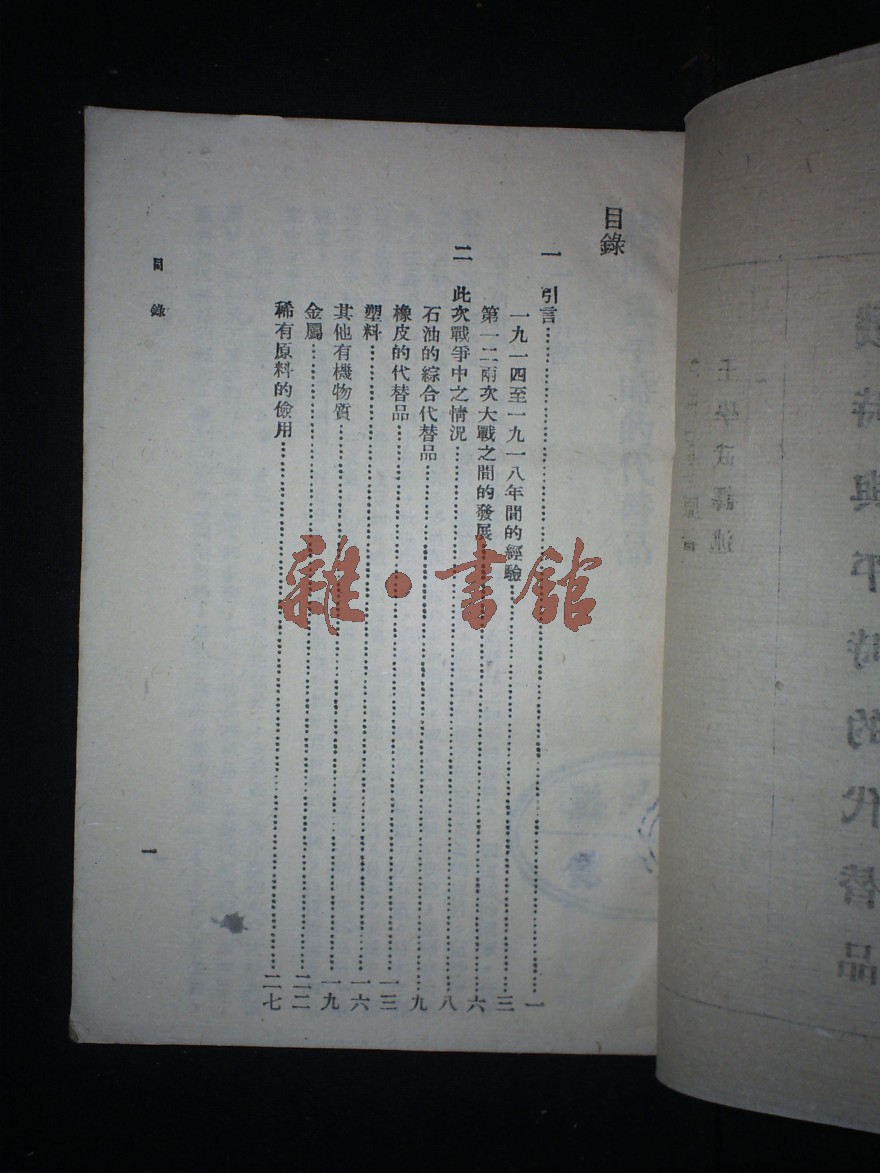 目錄
一　引言……一
一九一四至一九一八年間的經驗……三
第一二兩次大戰之間的發展……六
二　此次戰爭中之情況……八
石油的綜合代替品……九
橡皮的代替品……一三
塑料……一六
其他有機物質……一九
金屬……二二
稀有原料的儉用……二七
目錄
一
雜·書館
戰時與平時的代替品
王學武譯述